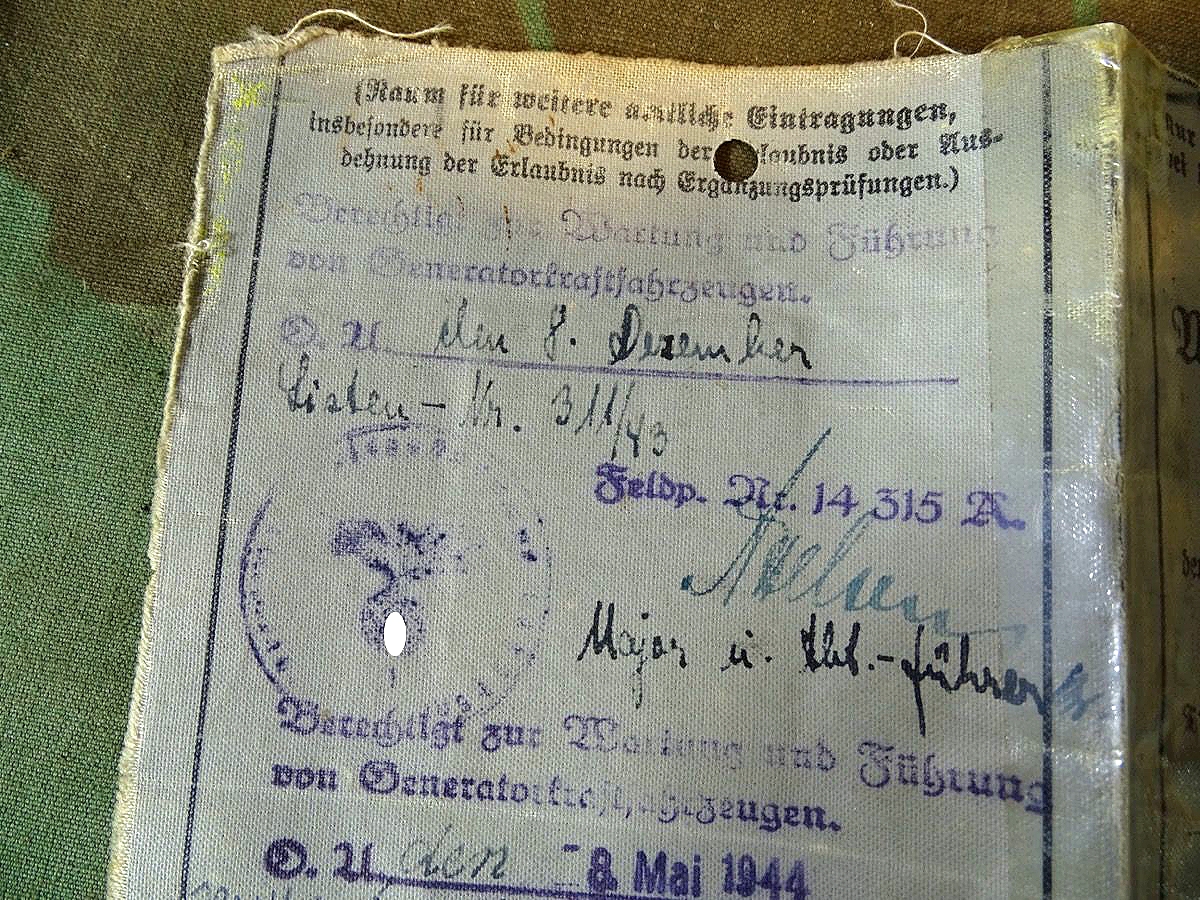 (Raum für weitere amtliche Eintragungen,
insbesondere für Bedingungen der Erlaubnis oder Aus-
dehnung der Erlaubnis nach Ergänzungsprüfungen.)
Berechtigt zur Wartung und Führung
von Generatorkraftfahrzeugen.
O. U. den 8. Dezember
Listen-Nr. 311/43
Feldp. Nr. 14 315 A.
Major u. Abt.-Führer
Berechtigt zur Wartung und Führung
von Generatorkraftfahrzeugen.
O. U. den - 8. Mai 1944